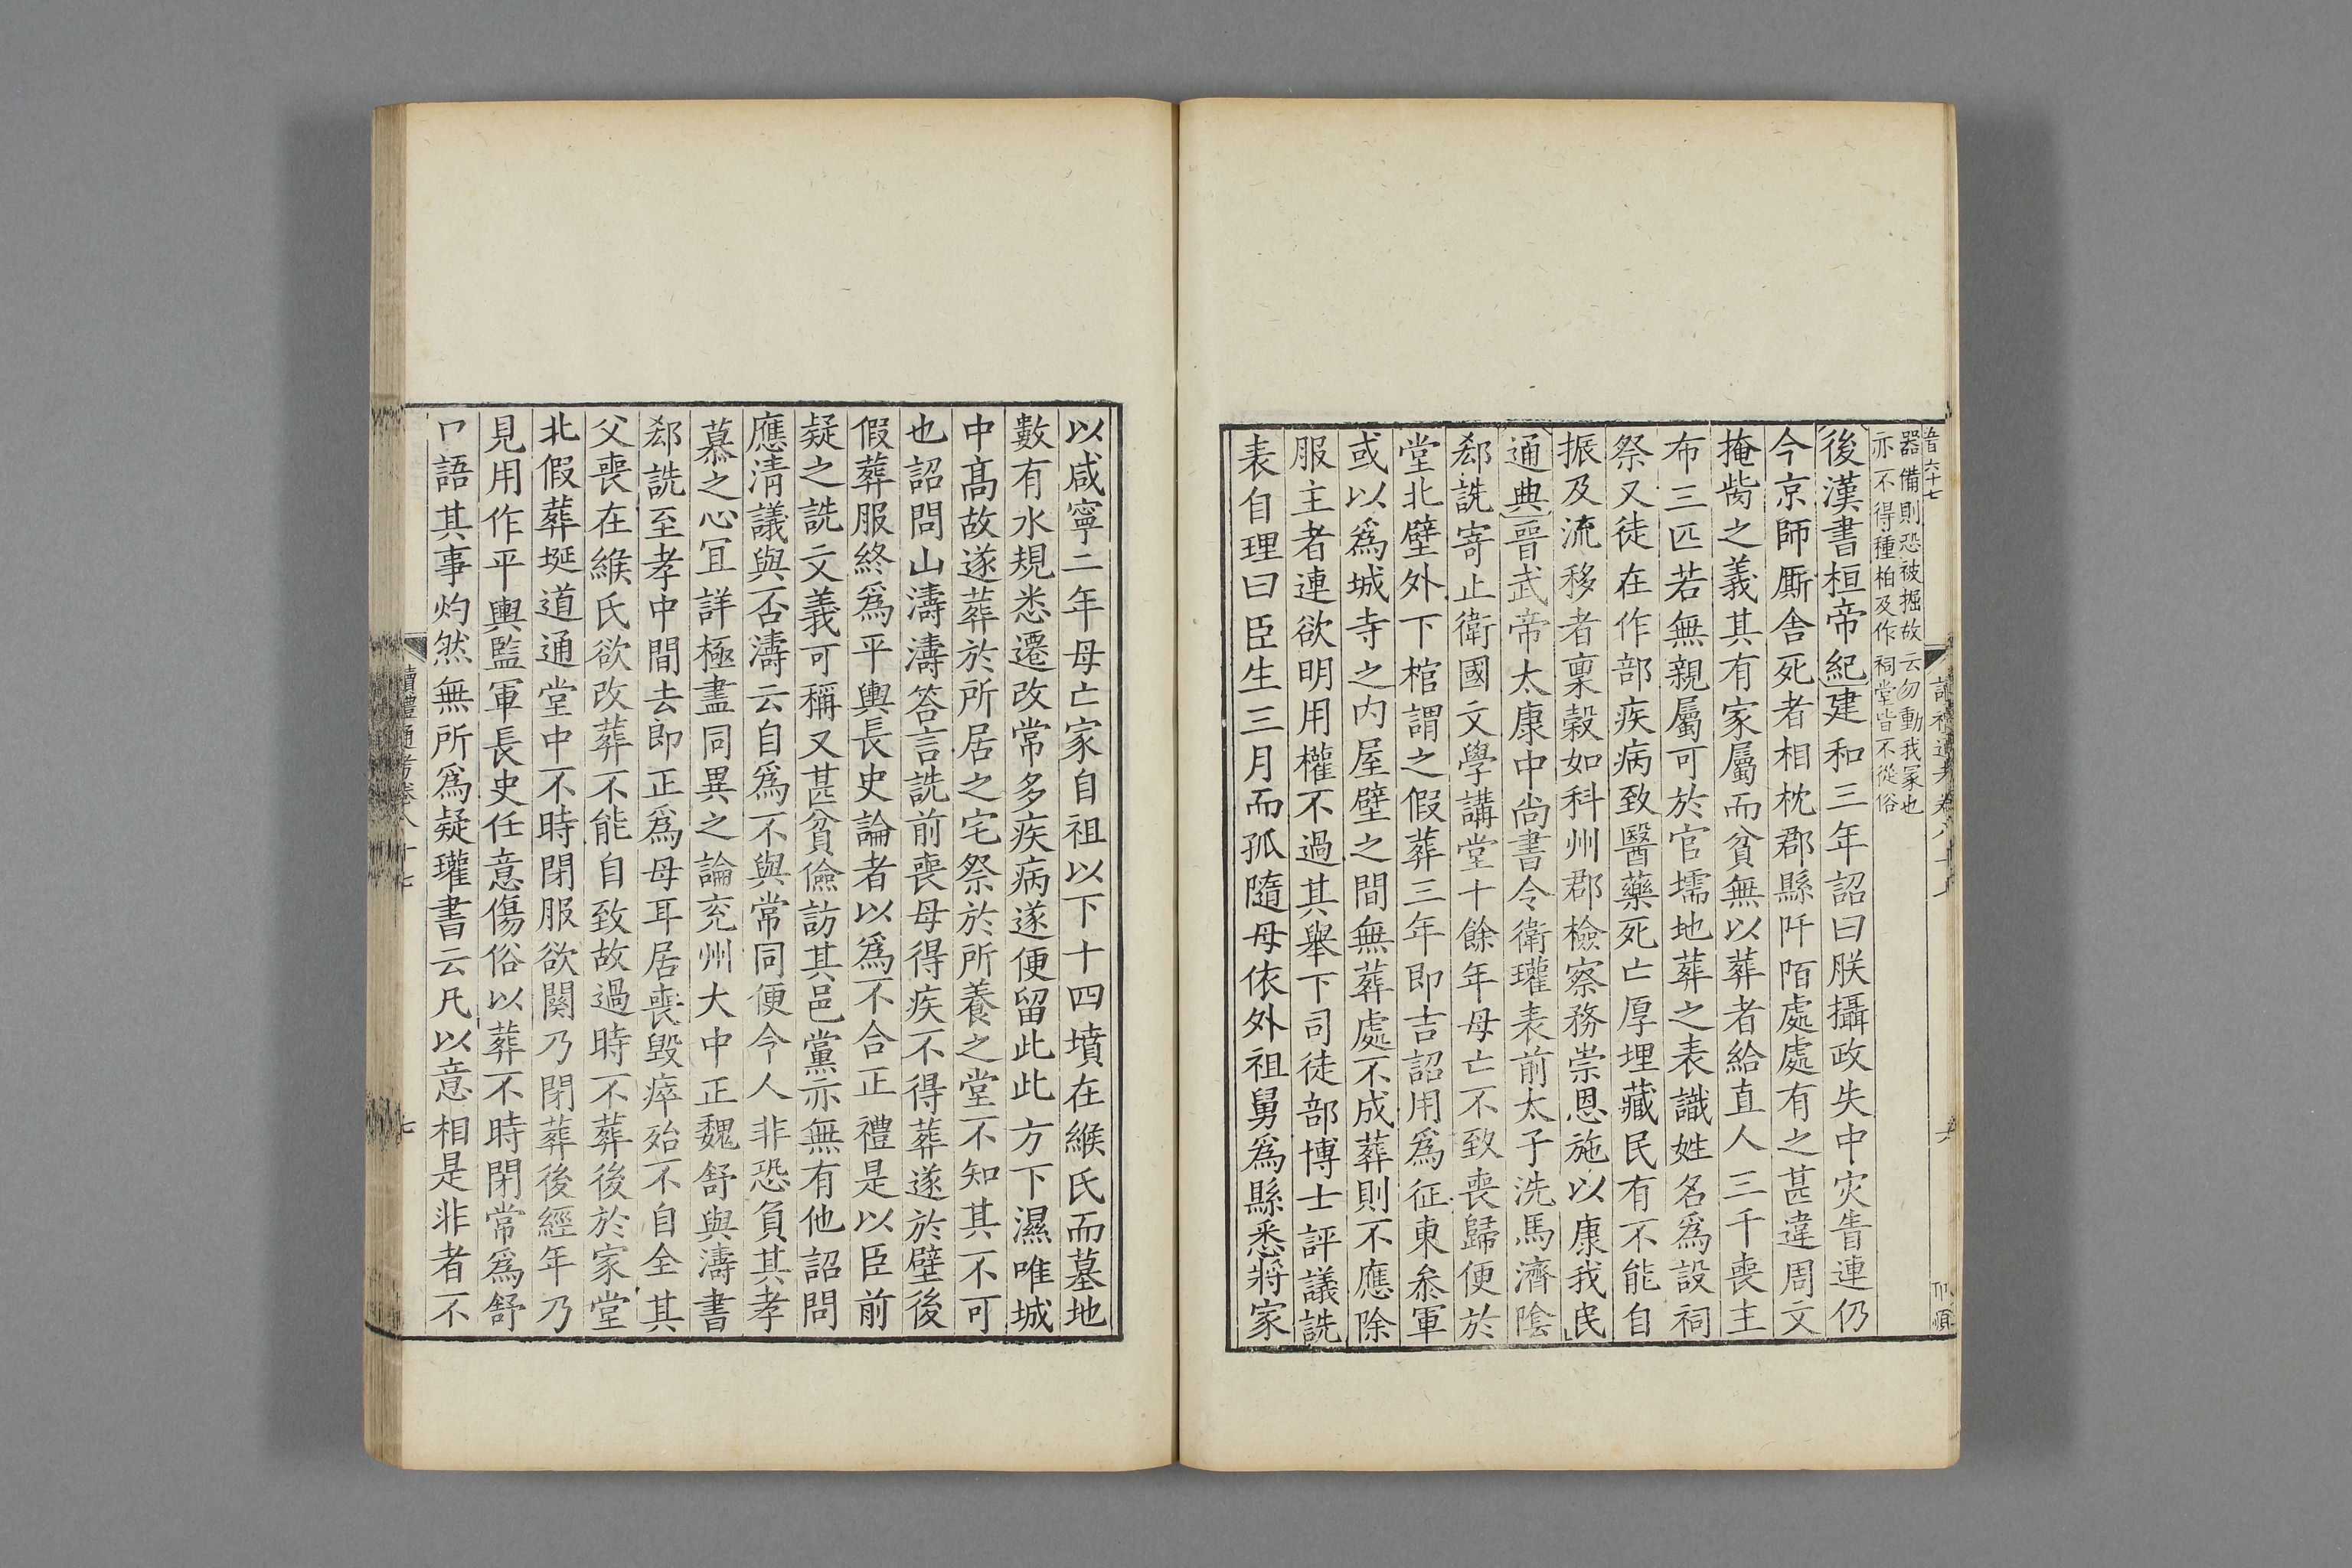 器備則恐被掘故云勿動我冢也
亦不得種柏及作祠堂皆不從俗
後漢書桓帝紀建和三年詔曰朕攝政失中灾眚連仍
今京師廝舍死者相枕郡縣阡陌處處有之甚違周文
掩胔之義其有家屬而貧無以葬者給直人三千喪主
布三匹若無親屬可於官壖地葬之表識姓名爲設祠
祭又徒在作部疾病致醫藥死亡厚埋藏民有不能自
振及流移者稟穀如科州郡檢察務崇恩施以康我民
通典晉武帝太康中尚書令衛瓘表前太子洗馬濟陰
郄詵寄止衛國文學講堂十餘年母亡不致喪歸便於
堂北壁外下棺謂之假葬三年即吉詔用爲征東叅軍
或以爲城寺之内屋壁之間無葬處不成葬則不應除
服主者連欲明用權不過其舉下司徒部博士評議詵
表自理曰臣生三月而孤隨母依外祖舅爲縣悉將家
以咸寧二年母亡家自祖以下十四墳在緱氏而墓地
數有水規悉遷改常多疾病遂便留此此方下濕唯城
中髙故遂葬於所居之宅祭於所養之堂不知其不可
也詔問山濤濤答言詵前喪母得疾不得葬遂於壁後
假葬服終爲平輿長史論者以爲不合正禮是以臣前
疑之詵文義可稱又甚貧儉訪其邑黨亦無有他詔問
應清議與否濤云自爲不與常同便令人非恐負其孝
慕之心宜詳極盡同異之論兖州大中正魏舒與濤書
郄詵至孝中間去郎正爲母耳居喪毀瘁殆不自全其
父喪在緱氏欲改葬不能自致故過時不葬後於家堂
北假葬埏道通堂中不時閉服欲闋乃閉葬後經年乃
見用作平輿監軍長史任意傷俗以葬不時閉常爲舒
口語其事灼然無所爲疑瓘書云凡以意相是非者不
讀禮通考卷八十七
七